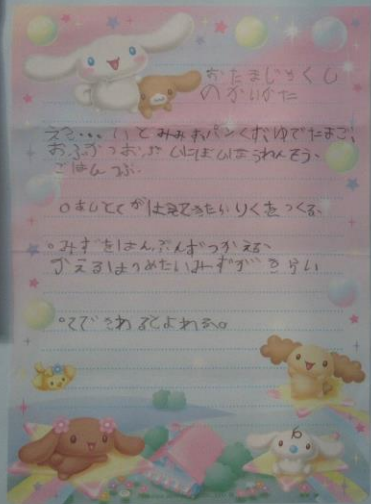 おたまじゃくし
のかいかた
えさ・・・いとみみずパンくずゆでたまご、
おふかつおぶしにぼしほうれんそう、
ごはんつぶ。
○あしとてがはえてきたらりくをつくる。
○みずをはんぶんずつかえる
かえるはつめたいみずがきらい
○てでさわるとよわる。